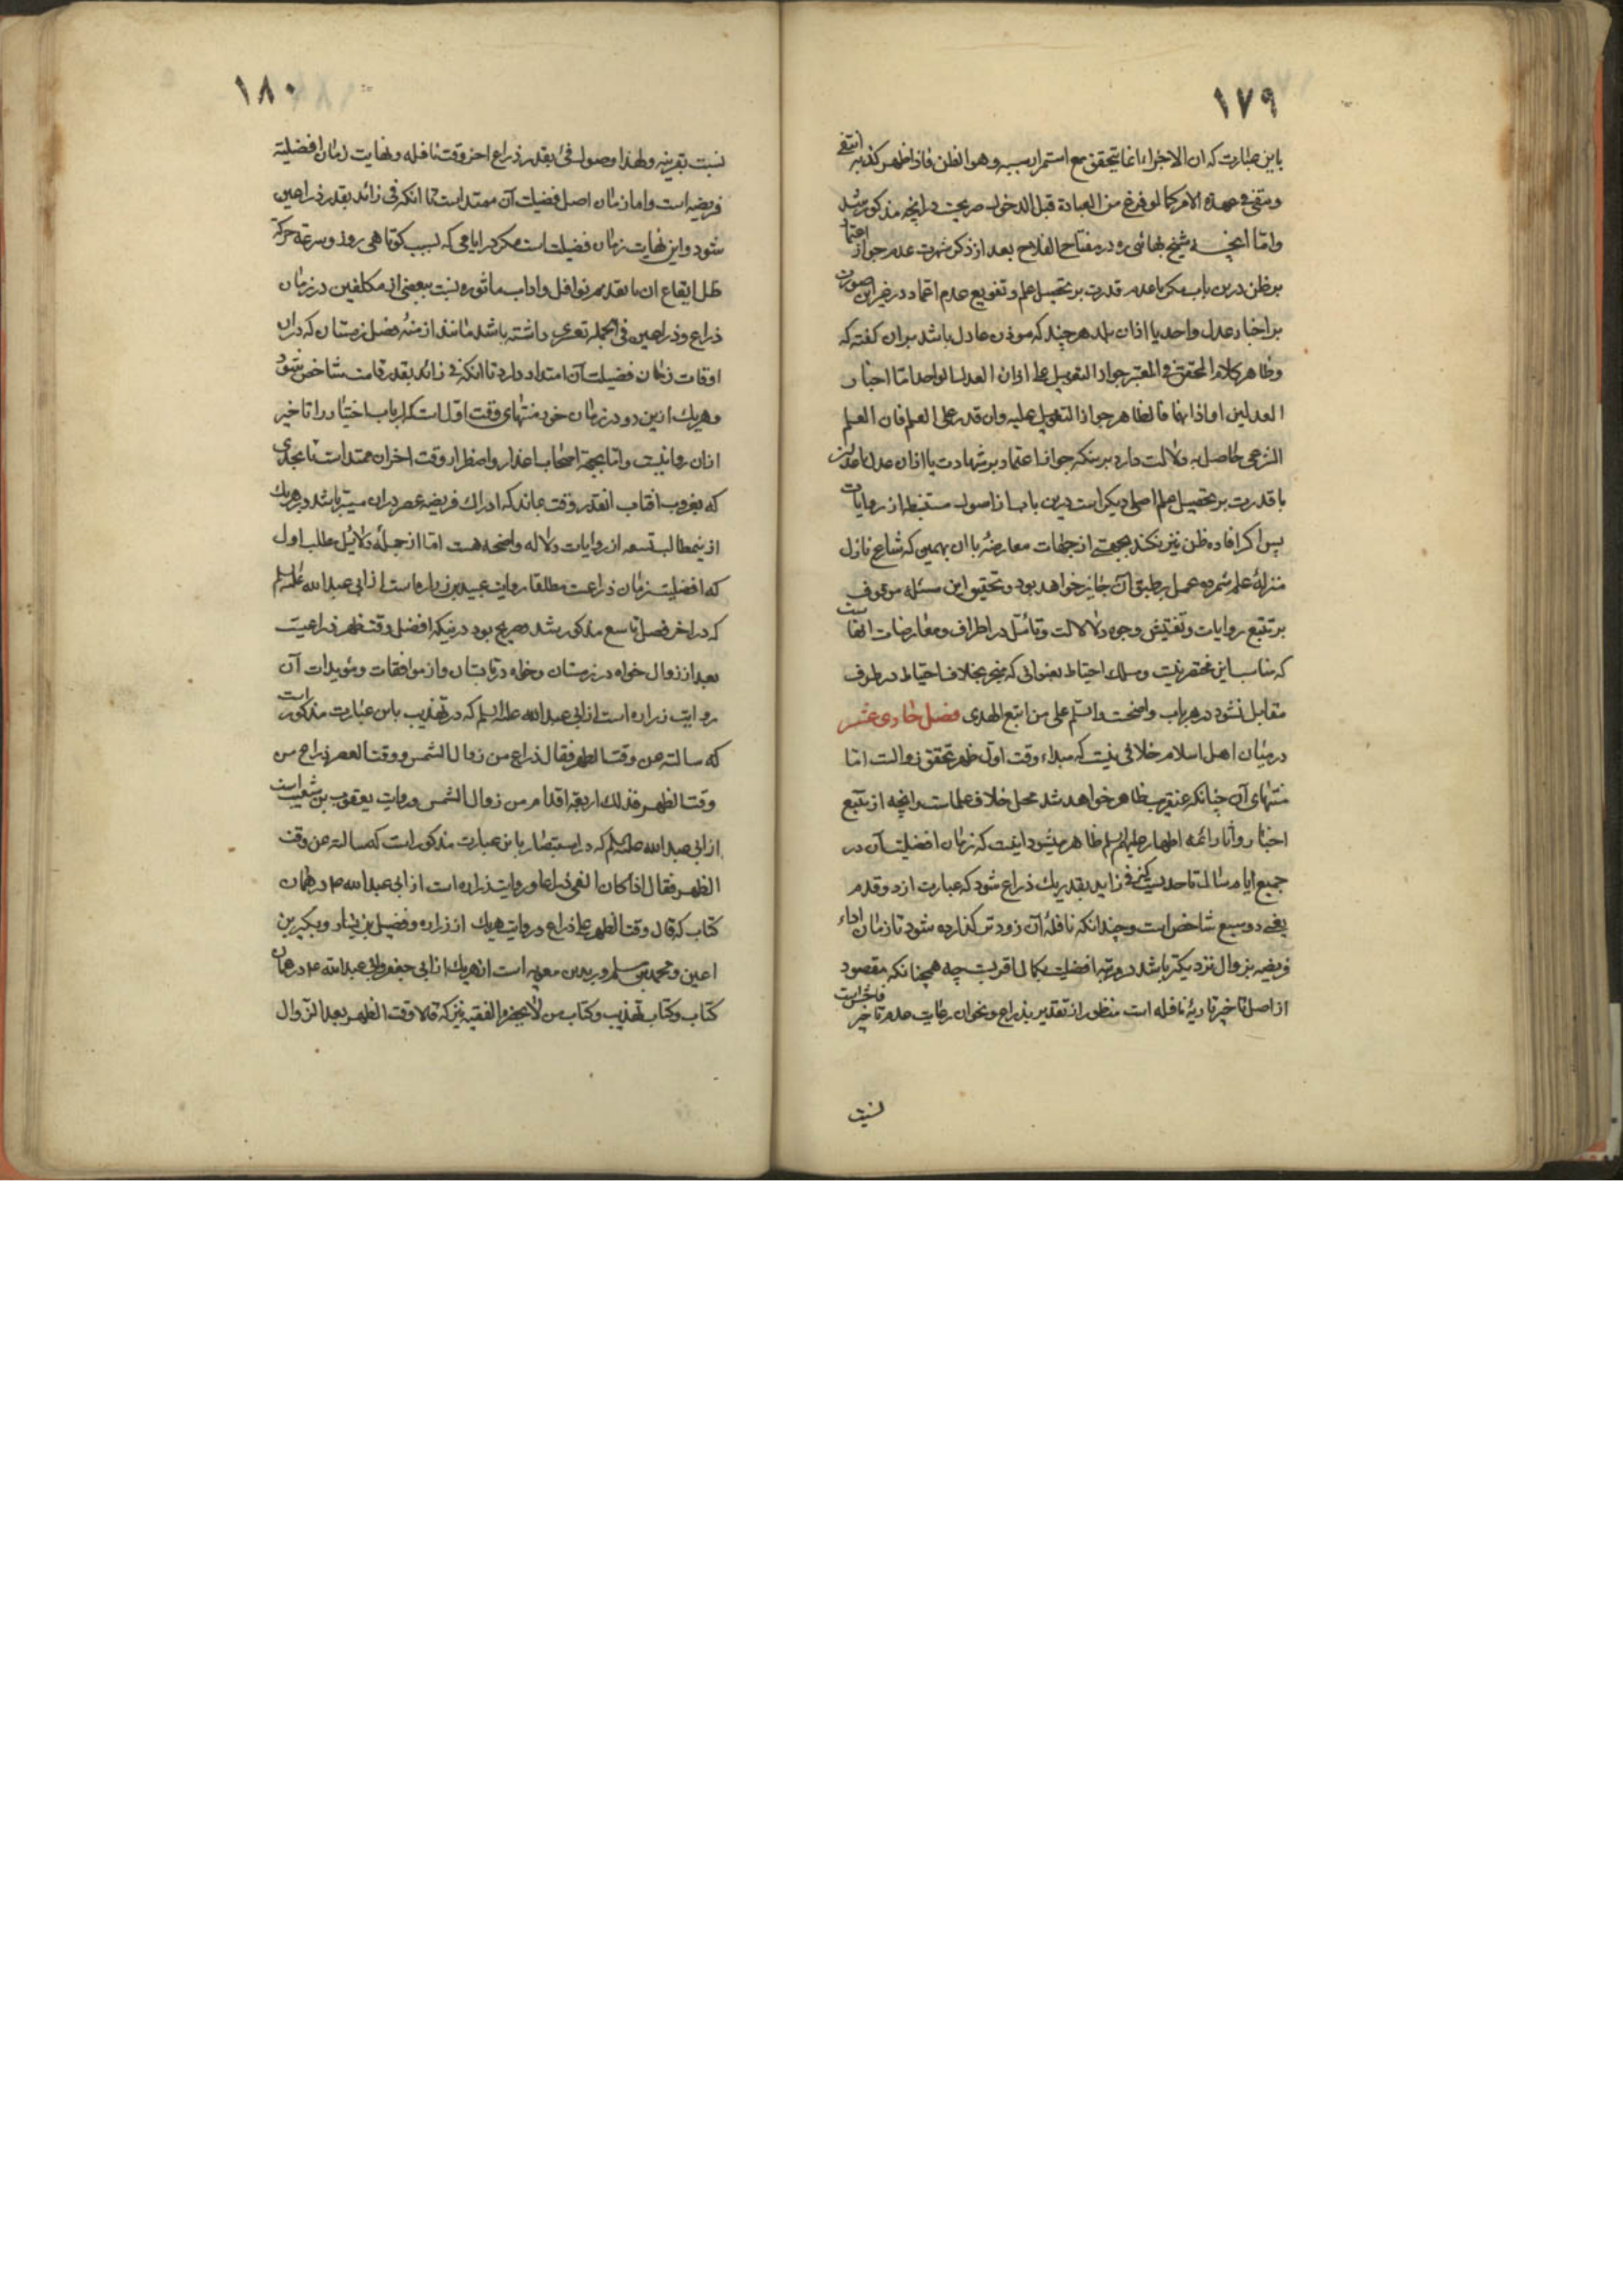 ١٧٩
باین عبارت که ان الاجزاء انما یتحقق مع استمرار سببه وهو الظن فاذا ظهر کذبه انتفی
وبقی فی عهدة الامر کما لو فرغ من العبادة قبل الدخول صریحست در انچه مذکور شد
واما انچه شیخ بهائی ره در مفتاح الفلاح بعد از ذکر شهرت عدم جواز اعتماد
بر ظن درین باب مکر با عدم قدرت بر تحصیل علم وتفریع عدم اعتماد در غیر این صورت
بر اخبار عدل واحد یا اذان بلد هر چند که موذن عادل باشد بران کفته که
وظاهر کلام المحقق فی المعتبر جواز التعویل علی اذان العدل الواحد اما اخبار
العدلین او اذانهما فالظاهر جواز التعویل علیه وان قدر علی العلم فان العلم
الشرعی حاصل به دلالت دارد برینکه جواز اعتماد بر شهادت یا اذان عدلین
با قدرت بر تحصیل علم اصلی دیکر است درین باب از اصول مستنبطه از روایات
پس اکر افاده ظن نیز نکند بجهتی از جهات معارضه با ان بهمین که شارع نازل
منزلهٔ علم شمرده عمل بر طبق آن جایز خواهد بود وتحقیق این مسئله موقوف
بر تتبع روایات وتفتیش وجوه دلالات وتامّل در اطراف ومعارضات انهاست
که مناسب این مختصر نیست ومسلک احتیاط بعنوانی که منجر بخلاف احتیاط در طرف
مقابل نشود در هر باب واضحست والسّلم علی من اتبع الهدی فصل حادی عشر
در میان اهل اسلام خلافی نیست که مبداء وقت اول ظهر تحقق زوالست امّا
منتهای آن چنانکه عنقریب ظاهر خواهد شد محل خلاف علماست وانچه از تتبع
اخبار واثار ائمه اطهار علیهم السلم ظاهر میشود اینست که زمان افضلیت آن در
جمیع ایام سال تا حدیست که فی زاید بقدر یک ذراع شود که عبارت از دو قدم
یعنی دو سبع شاخص است وچندانکه نافلهٔ آن زودتر کذارده شود تا زمان اداء
فریضه بزوال نزدیکتر باشد در مرتبه افضلیت بکمال اقربست چه همچنانکه مقصود
از اصل تاخیر تادیهٔ نافله است منظور از تقدیر بذراع ونحو ان رعایت عدم تاخیر فاحش است
نسبت
١٨٠
نسبت بقرینه ولهذا وصول فی بقدر ذراع اخر وقت نافله ونهایت زمان افضلیة
فریضه است واما زمان اصل فضیلت آن ممتد است تا انکه فی زائد بقدر ذراعین
شود واین نهایت زمان فضیلت است مکر در ایامی که بسبب کوتاهی روز وسرعة حرکة
ظل ایقاع ان با تقدیم نوافل واداب ماثوره نسبت ببعضی از مکلفین در زمان
ذراع وذراعین فی الجمله تعسری داشته باشد مانند ازمنهٔ فصل زمستان که دران
اوقات زمان فضیلت آن امتداد دارد تا انکه فی زائد بقدر قامت شاخص شود
وهریک ازین دو در زمان خود منتهای وقت اول است که ارباب اختیار را تاخیر
ازان روا نیست واما بجهة اصحاب اعذار واضطرار وقت اخران ممتد است تا بحدی
که بغروب افتاب انقدر وقت بماند که ادراک فریضه عصر دران میسر باشد وبر هریک
از ینمطالب تسعه از روایات دلاله واضحه هست اما از جملهٔ دلائیل مطلب اول
که افضلیت زمان ذراعست مطلقا روایت عبید بن زراره است از ابی عبدالله علیه السلم
که در اخر فصل تاسع مذکور شد وصریح بود درینکه افضل وقت ظهر ذراعیست
بعد از زوال خواه در زمستان وخواه در تابستان واز موافقات ومؤیدات آن
روایت زراره است از ابی عبدالله علیه السلم که در تهذیب باین عبارت مذکور است
که سالته عن وقت الظهر فقال ذراع من زوال الشمس ووقت العصر ذراع من
وقت الظهر فذلک اربعة اقدام من زوال الشمس وروایت یعقوب بن شعیب است
از ابی عبدالله علیه السلم که در استبصار باین عبارت مذکور است که سالته عن وقت
الظهر فقال اذا کان الفئ ذراعا وروایت زراره است از ابی عبدالله ع م در همان
کتاب که قال وقت الظهر علی ذراع وروایت هریک از زراره وفضیل بن یسار وبکیر بن
اعین ومحمد بن مسلم وبرید بن معویه است از هریک از ابی جعفر وابی عبدالله ع م در همان
کتاب وکتاب تهذیب وکتاب من لا یحضره الفقیه نیز که قالا وقت الظهر بعد الزوال